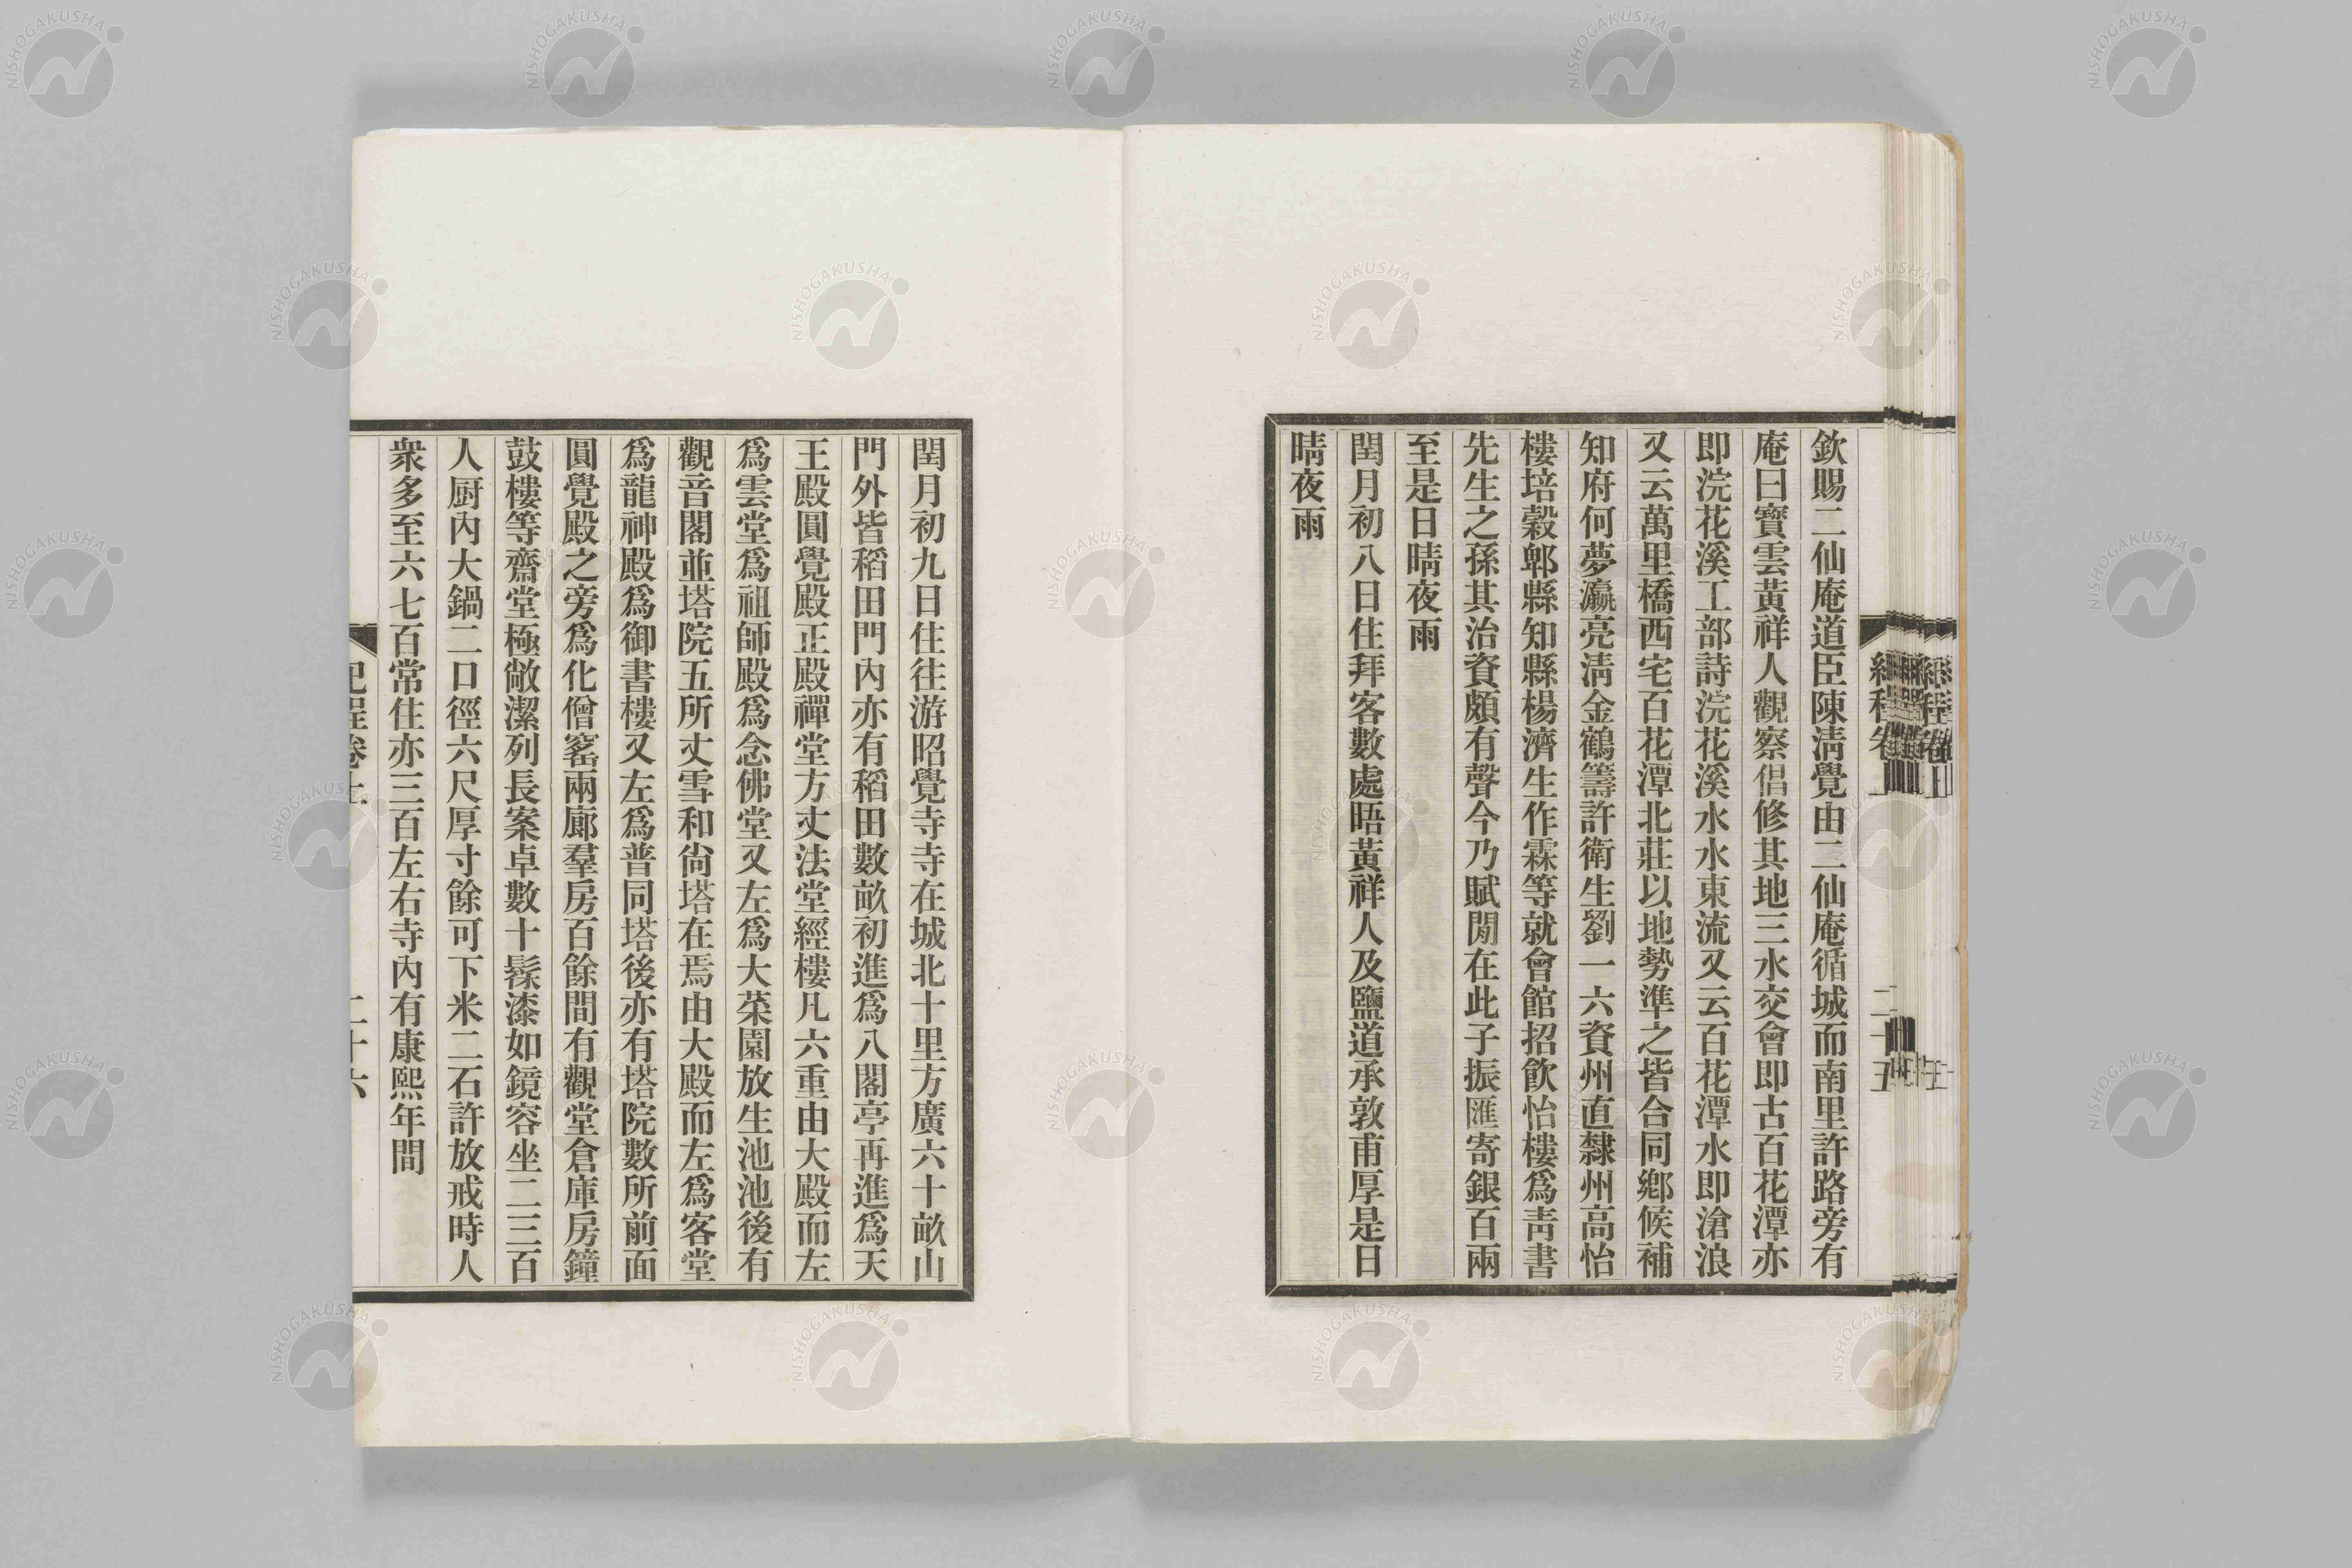 欽賜二仙庵道臣陳淸覺由二仙庵循城而南里許路旁有
庵曰寶雲黃祥人觀察倡修其地三水交會即古百花潭亦
即浣花溪工部詩浣花溪水水東流又云百花潭水即滄浪
又云萬里橋西宅百花潭北莊以地勢準之皆合同鄉候補
知府何夢瀛亮淸金鶴籌許衛生劉一六資州直隸州高怡
樓培穀郫縣知縣楊濟生作霖等就會館招飮怡樓爲靑書
先生之孫其治資頗有聲今乃賦閒在此子振匯寄銀百兩
至是日晴夜雨
閏月初八日住拜客數處晤黃祥人及鹽道承敦甫厚是日
晴夜雨
閏月初九日住往游昭覺寺寺在城北十里方廣六十畝山
門外皆稻田門內亦有稻田數畝初進爲八閣亭再進爲天
王殿圓覺殿正殿禪堂方丈法堂經樓凡六重由大殿而左
爲雲堂爲祖師殿爲念佛堂又左爲大菜園放生池池後有
觀音閣並塔院五所丈雪和尙塔在焉由大殿而左爲客堂
爲龍神殿爲御書樓又左爲普同塔後亦有塔院數所前面
圓覺殿之旁爲化僧窰兩廊羣房百餘間有觀堂倉庫房鐘
鼓樓等齋堂極敞潔列長案卓數十髹漆如鏡容坐二三百
人厨內大鍋二口徑六尺厚寸餘可下米二石許放戒時人
衆多至六七百常住亦三百左右寺內有康熙年間
NISHOGAKUSHA